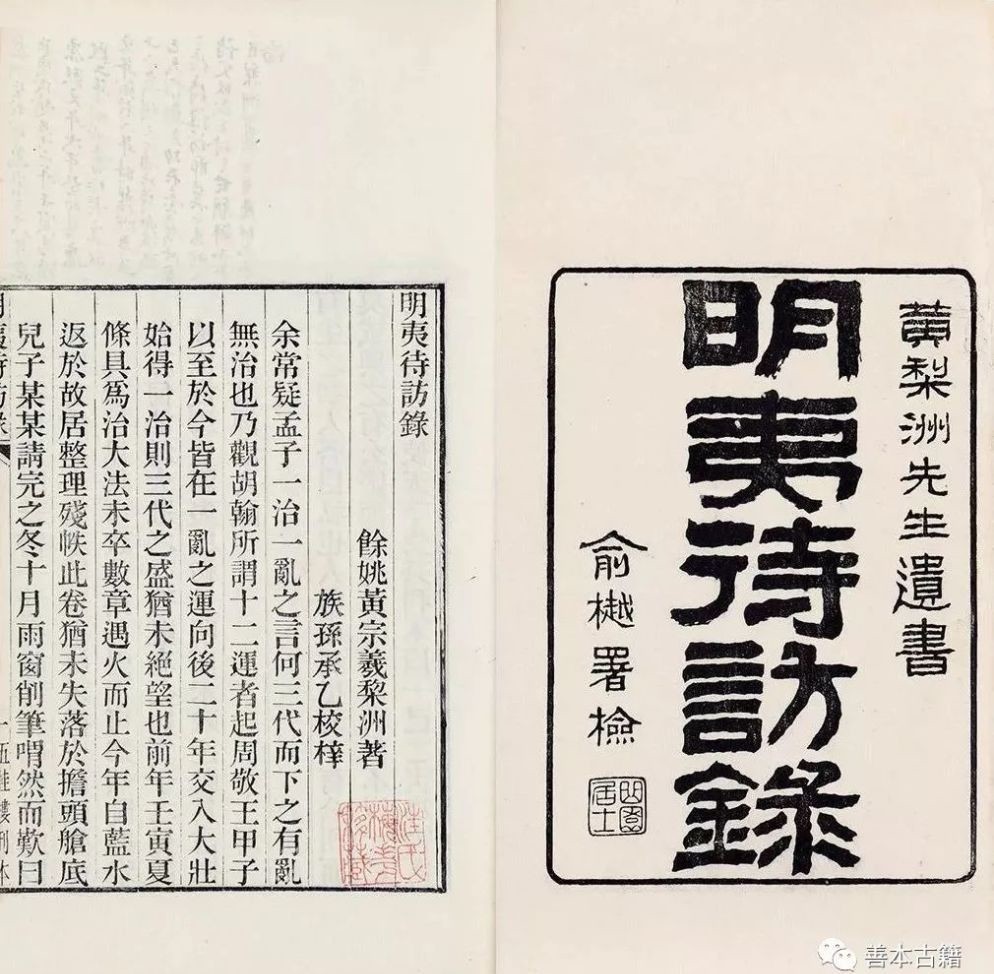 黃梨洲先生遺書
明夷待訪錄
俞樾署檢
曲園居士
明夷待訪錄
餘姚黃宗羲黎洲著
族孫承乙校梓
余常疑孟子一治一亂之言何三代而下之有亂
無治也乃觀胡翰所謂十二運者起周敬王甲子
以至於今皆在一亂之運向後二十年交入大壯
始得一治則三代之盛猶未絕望也前年壬寅夏
條具為治大法未卒數章遇火而止今年自藍水
返於故居整理殘帙此卷猶未失落於擔頭艙底
兒子某某請完之冬十月雨窗削筆喟然而歎曰
明夷待訪錄
一 五桂樓刊本
善本古籍